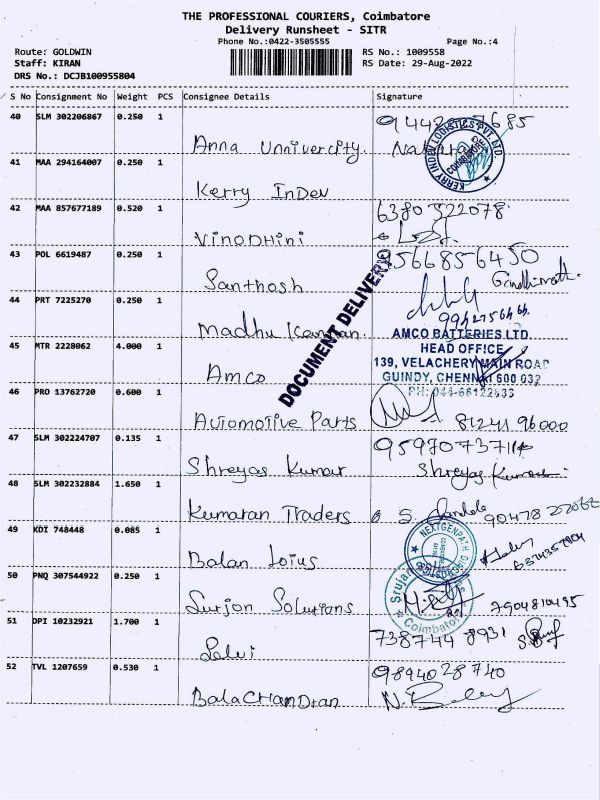 THE PROFESSIONAL COURIERS, Coimbatore
Delivery Runsheet - SITR
Phone No.:0422-3505555 Page No.:4
Route: GOLDWIN RS No.: 1009558
Staff: KIRAN RS Date: 29-Aug-2022
DRS No.: DCJB100955804
S No Consignment No Weight PCS Consignee Details Signature
40 SLM 302206867 0.250 1
Anna Unnivercity.
KERRY INDEV LOGISTICS PVT. LTD.
COIMBATORE
41 MAA 294164007 0.250 1
Kerry InDev
42 MAA 857677189 0.520 1 6380322078
VinoDhini
43 POL 6619487 0.250 1 9566856450
Santhosh
44 PRT 7225270 0.250 1
Madhu Kannan.
DOCUMENT DELIVERY
45 MTR 2228062 4.000 1
Amco
AMCO BATTERIES LTD.
HEAD OFFICE
139, VELACHERY MAIN ROAD
GUINDY, CHENNAI 600 032
46 PRO 13762720 0.600 1
Automotive Parts 81241 96000
47 SLM 302224707 0.135 1
Shreyas Kumar Shreyas Kumar
48 SLM 302232884 1.650 1
Kumaran Traders
49 KDI 748448 0.085 1
Balan
50 PNQ 307544922 0.250 1
Surjon Solutions 7904810495
Srujan
Coimbatore
51 DPI 10232921 1.700 1 738744 8931
Selvi
52 TVL 1207659 0.530 1 9894028740
BalaCHanDran